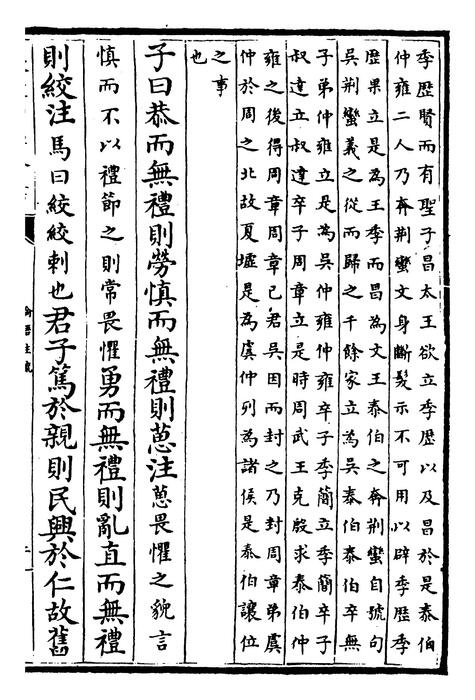 季歷賢而有聖子昌太王欲立季歷以及昌於是泰伯
仲雍二人乃奔荆蠻文身斷髮示不可用以辟季歴季
歴果立是為王季而昌為文王泰伯之奔荆蠻自號句
吳荆蠻義之從而歸之千餘家立為吳泰伯泰伯卒無
子弟仲雍立是為吳仲雍仲雍卒子季簡立季簡卒子
叔達立叔達卒子周章立是時周武王克殷求泰伯仲
雍之後得周章周章已君吳因而封之乃封周章弟虞
仲於周之北故夏墟是為虞仲列為諸侯是泰伯讓位
之事
也
子曰恭而無禮則勞慎而無禮則葸注葸畏懼之貌言
慎而不以禮節之則常畏懼勇而無禮則亂直而無禮
則絞注馬曰絞絞刺也君子篤於親則民興於仁故舊